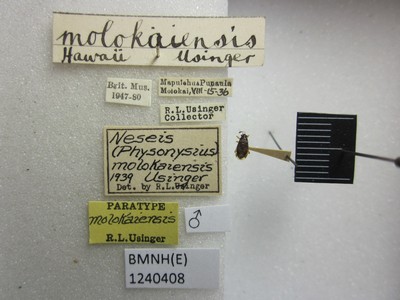 molokaiensis
Hawaii Usinger
Brit. Mus.
1947-80
Mapulehu Punaula
Molokai, VIII-15-36
R.L. Usinger
Collector
Neseis
(Physonysius)
molokaiensis
1939 Usinger
Det. by R.L. Usinger
PARATYPE
molokaiensis
R.L. Usinger
♂
BMNH(E)
1240408